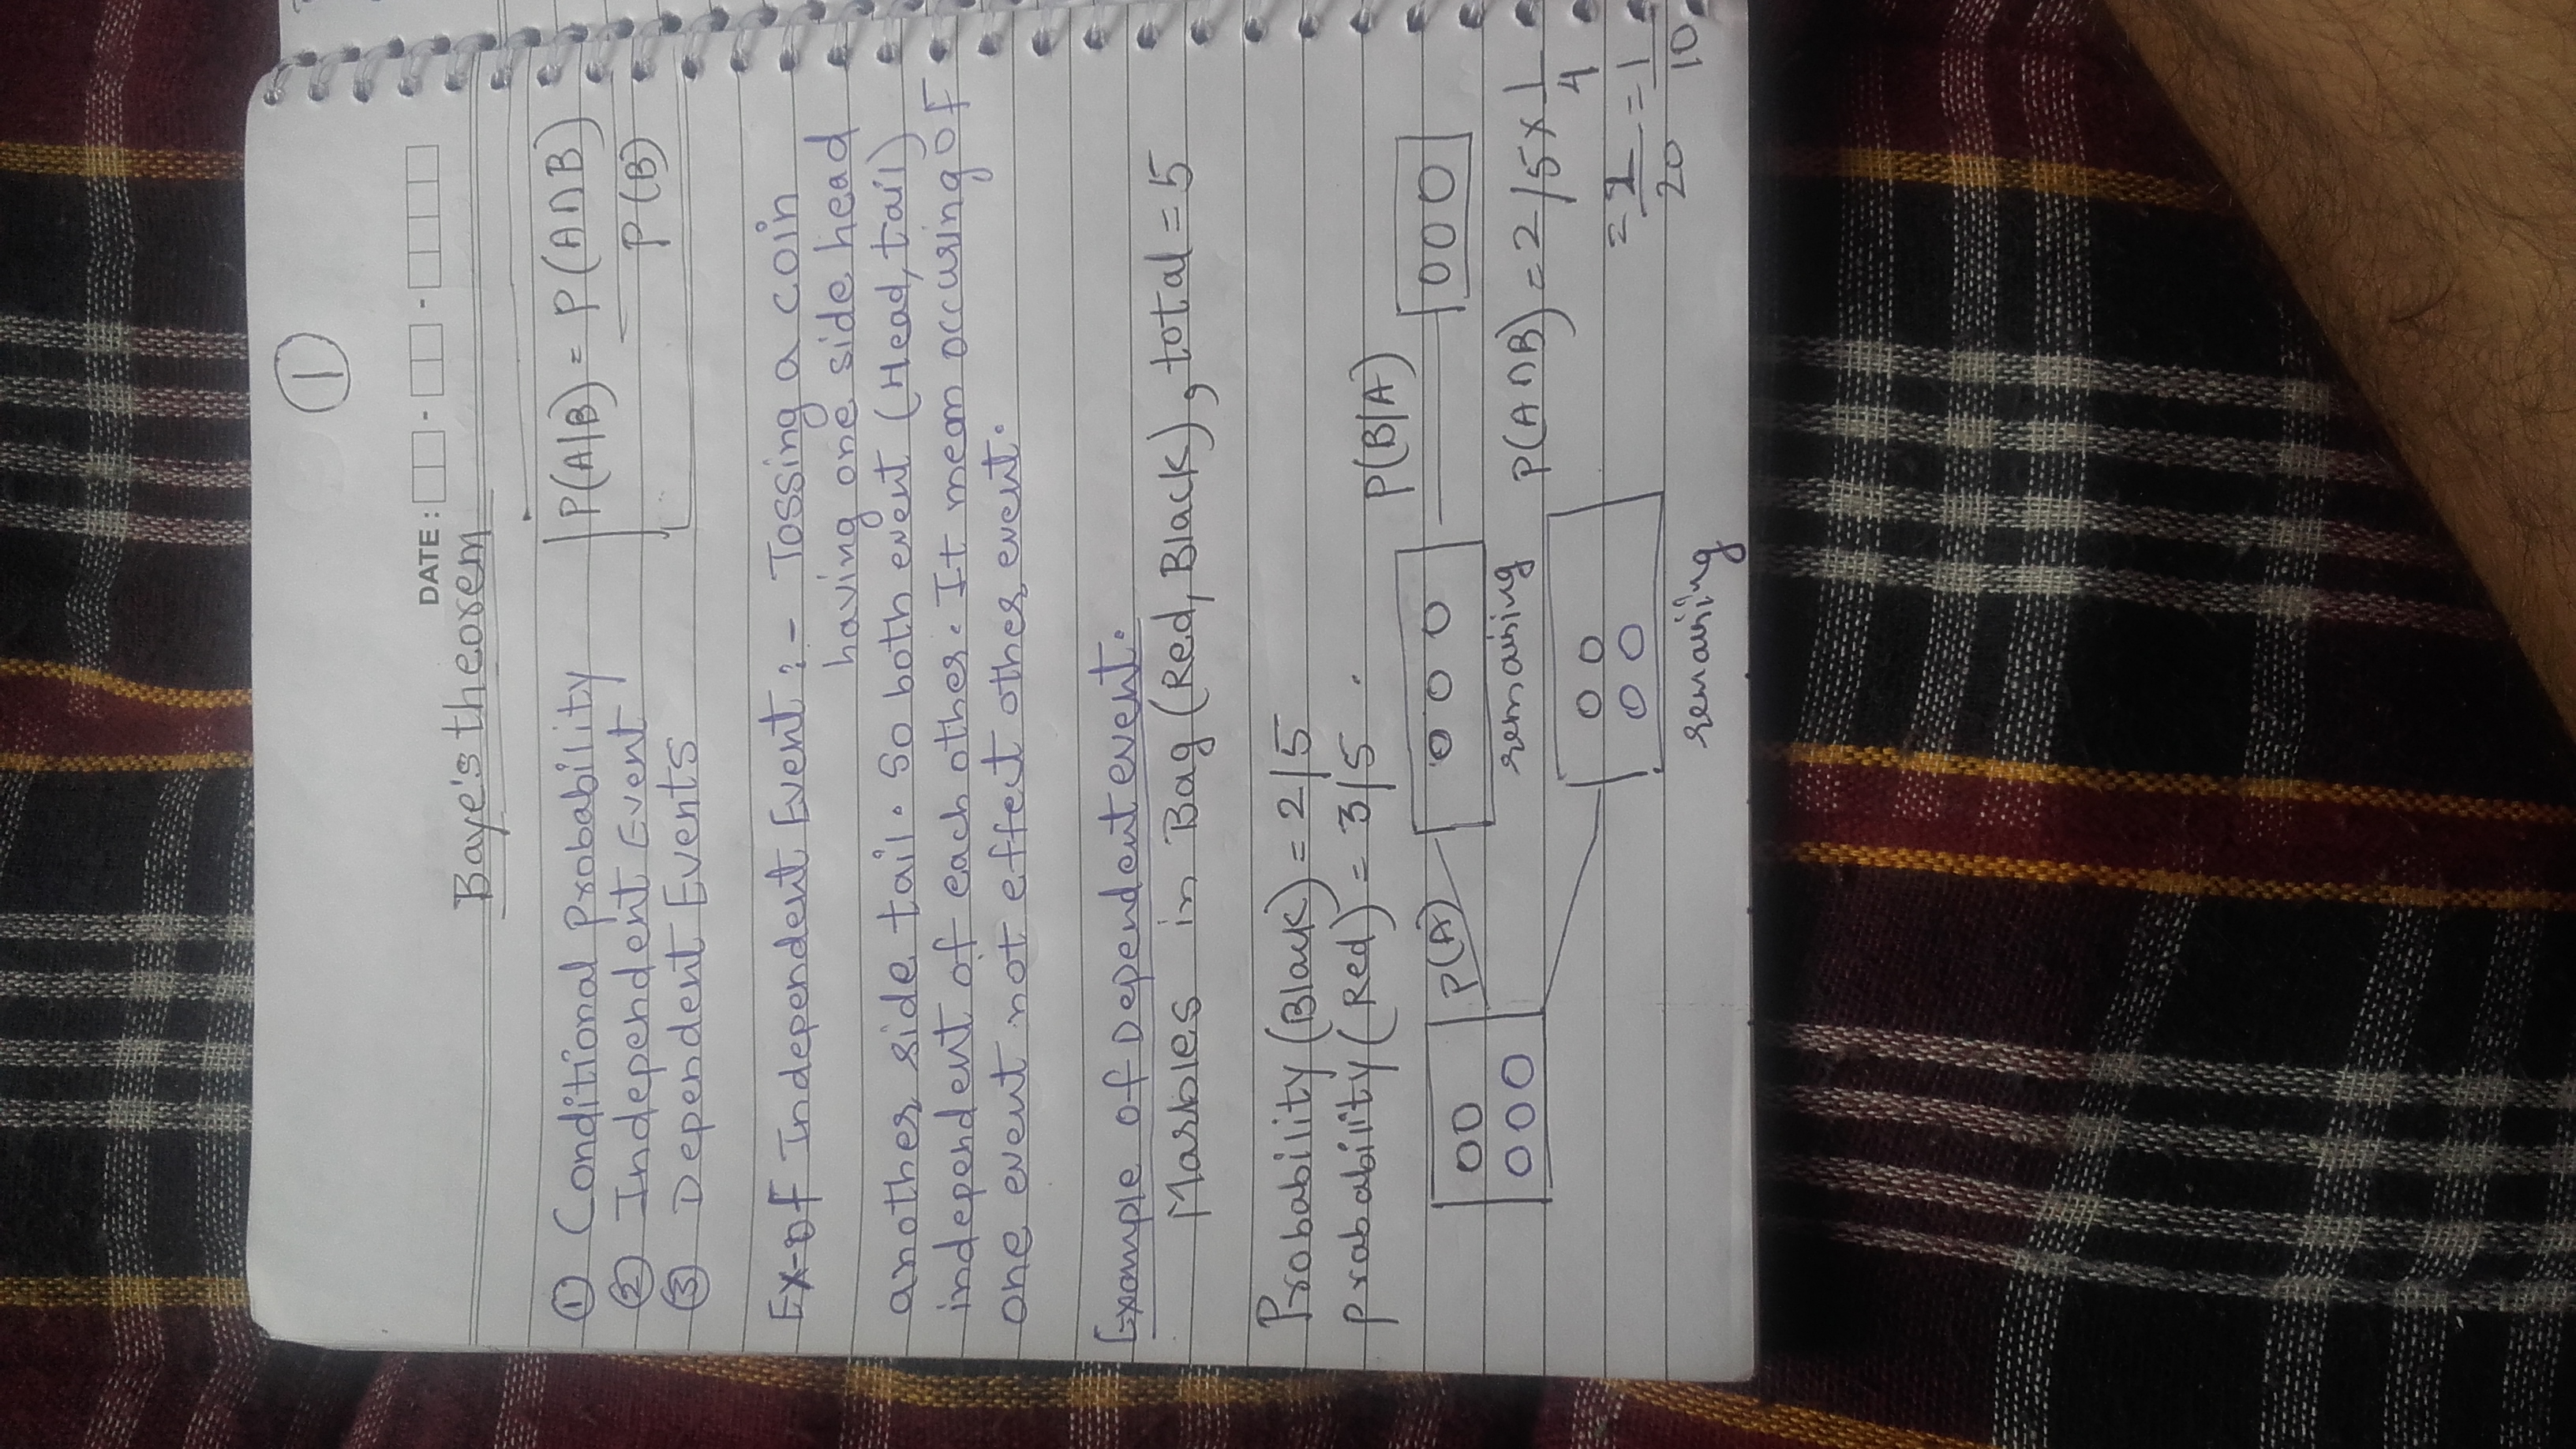 1
DATE : - -
Baye's theorem
① Conditional Probability
P(A|B) = P(A∩B)
P(B)
② Independent Event
③ Dependent Events
Ex-of Independent Event :- Tossing a coin
having one side head
another side tail. So both event (Head, tail)
independent of each other. It mean occuring of
one event not effect other event.
Example of Dependent event.
Marbles in Bag (Red, Black), total = 5
Probability (Black) = 2/5
prabability (Red) = 3/5 .
P(B/A)
P(A)
remaining
P(A∩B) = 2/5 × 1
4
= 2 = 1
20 10
remaining